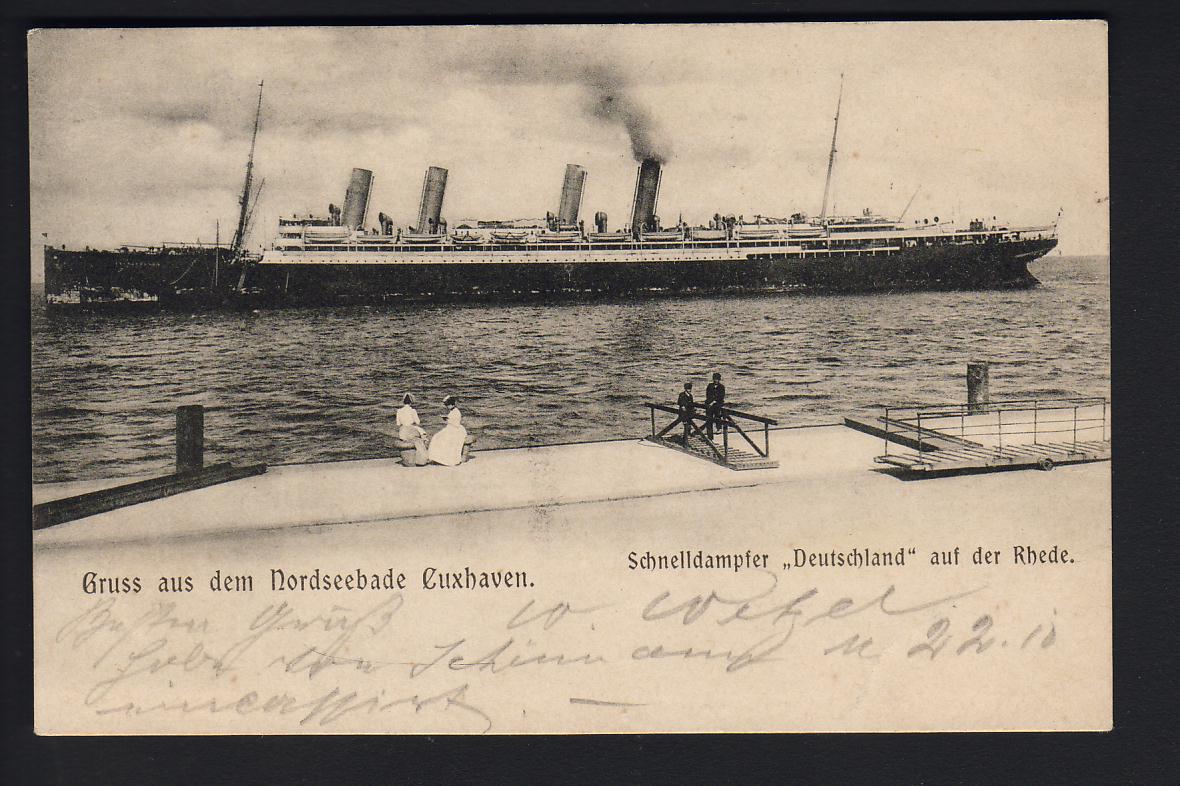 Gruss aus dem Nordseebade Cuxhaven.
Schnelldampfer „Deutschland“ auf der Rhede.
Besten Gruß W. Wetzel
habe von M 22.10
eincassirt. —